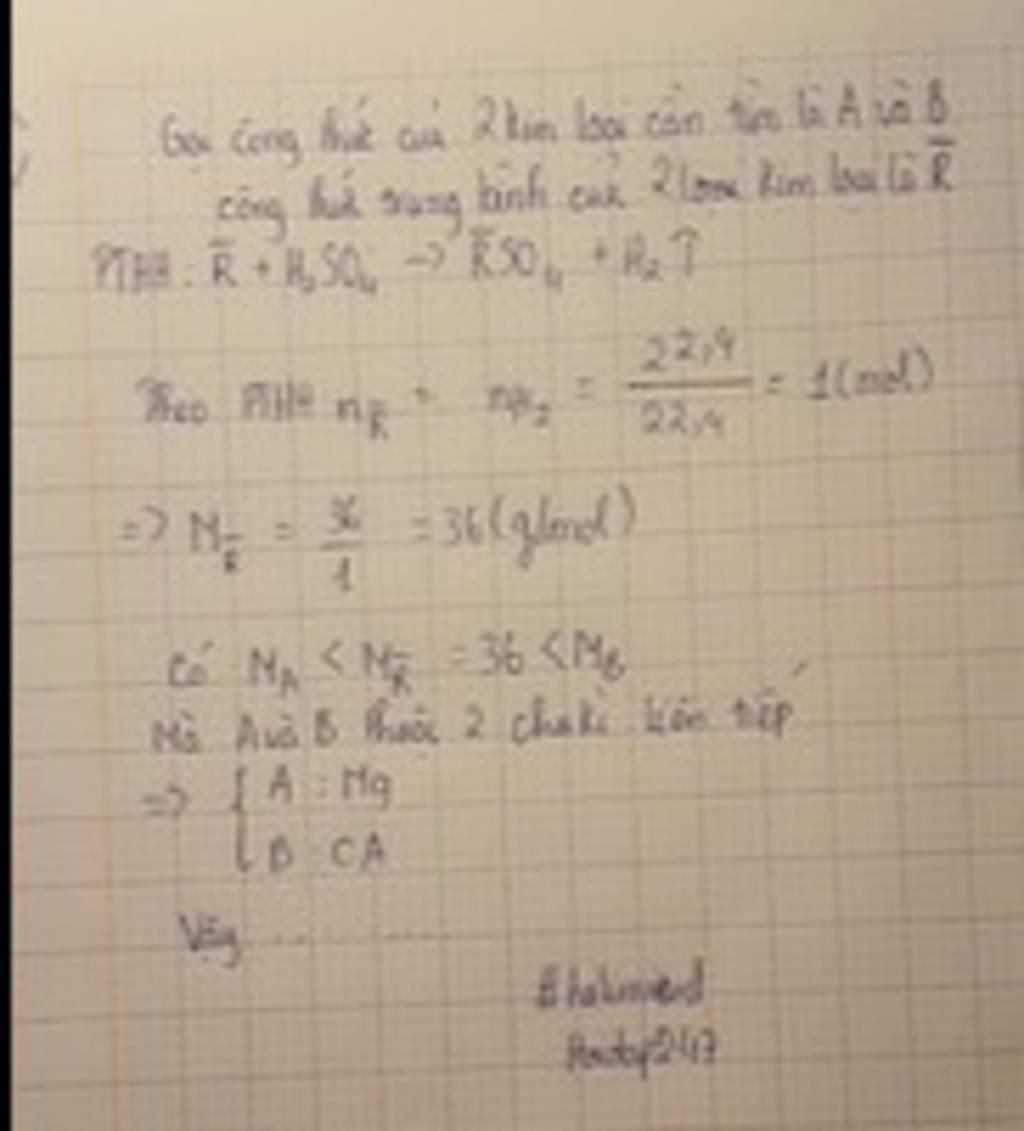 Gọi công thức của 2 kim loại cần tìm là A và B
công thức trung bình của 2 loại kim loại là R̅
PTHH: R̅ + H₂SO₄ -> R̅SO₄ + H₂ ↑
Theo PTHH n_R̅ = n_H₂ = 22,4/22,4 = 1 (mol)
=> M_R̅ = 36/1 = 36 (g/mol)
Có M_A < M_R̅ = 36 < M_B
Mà A và B thuộc 2 chu kì liên tiếp
=> { A : Mg
B CA
Vậy ............